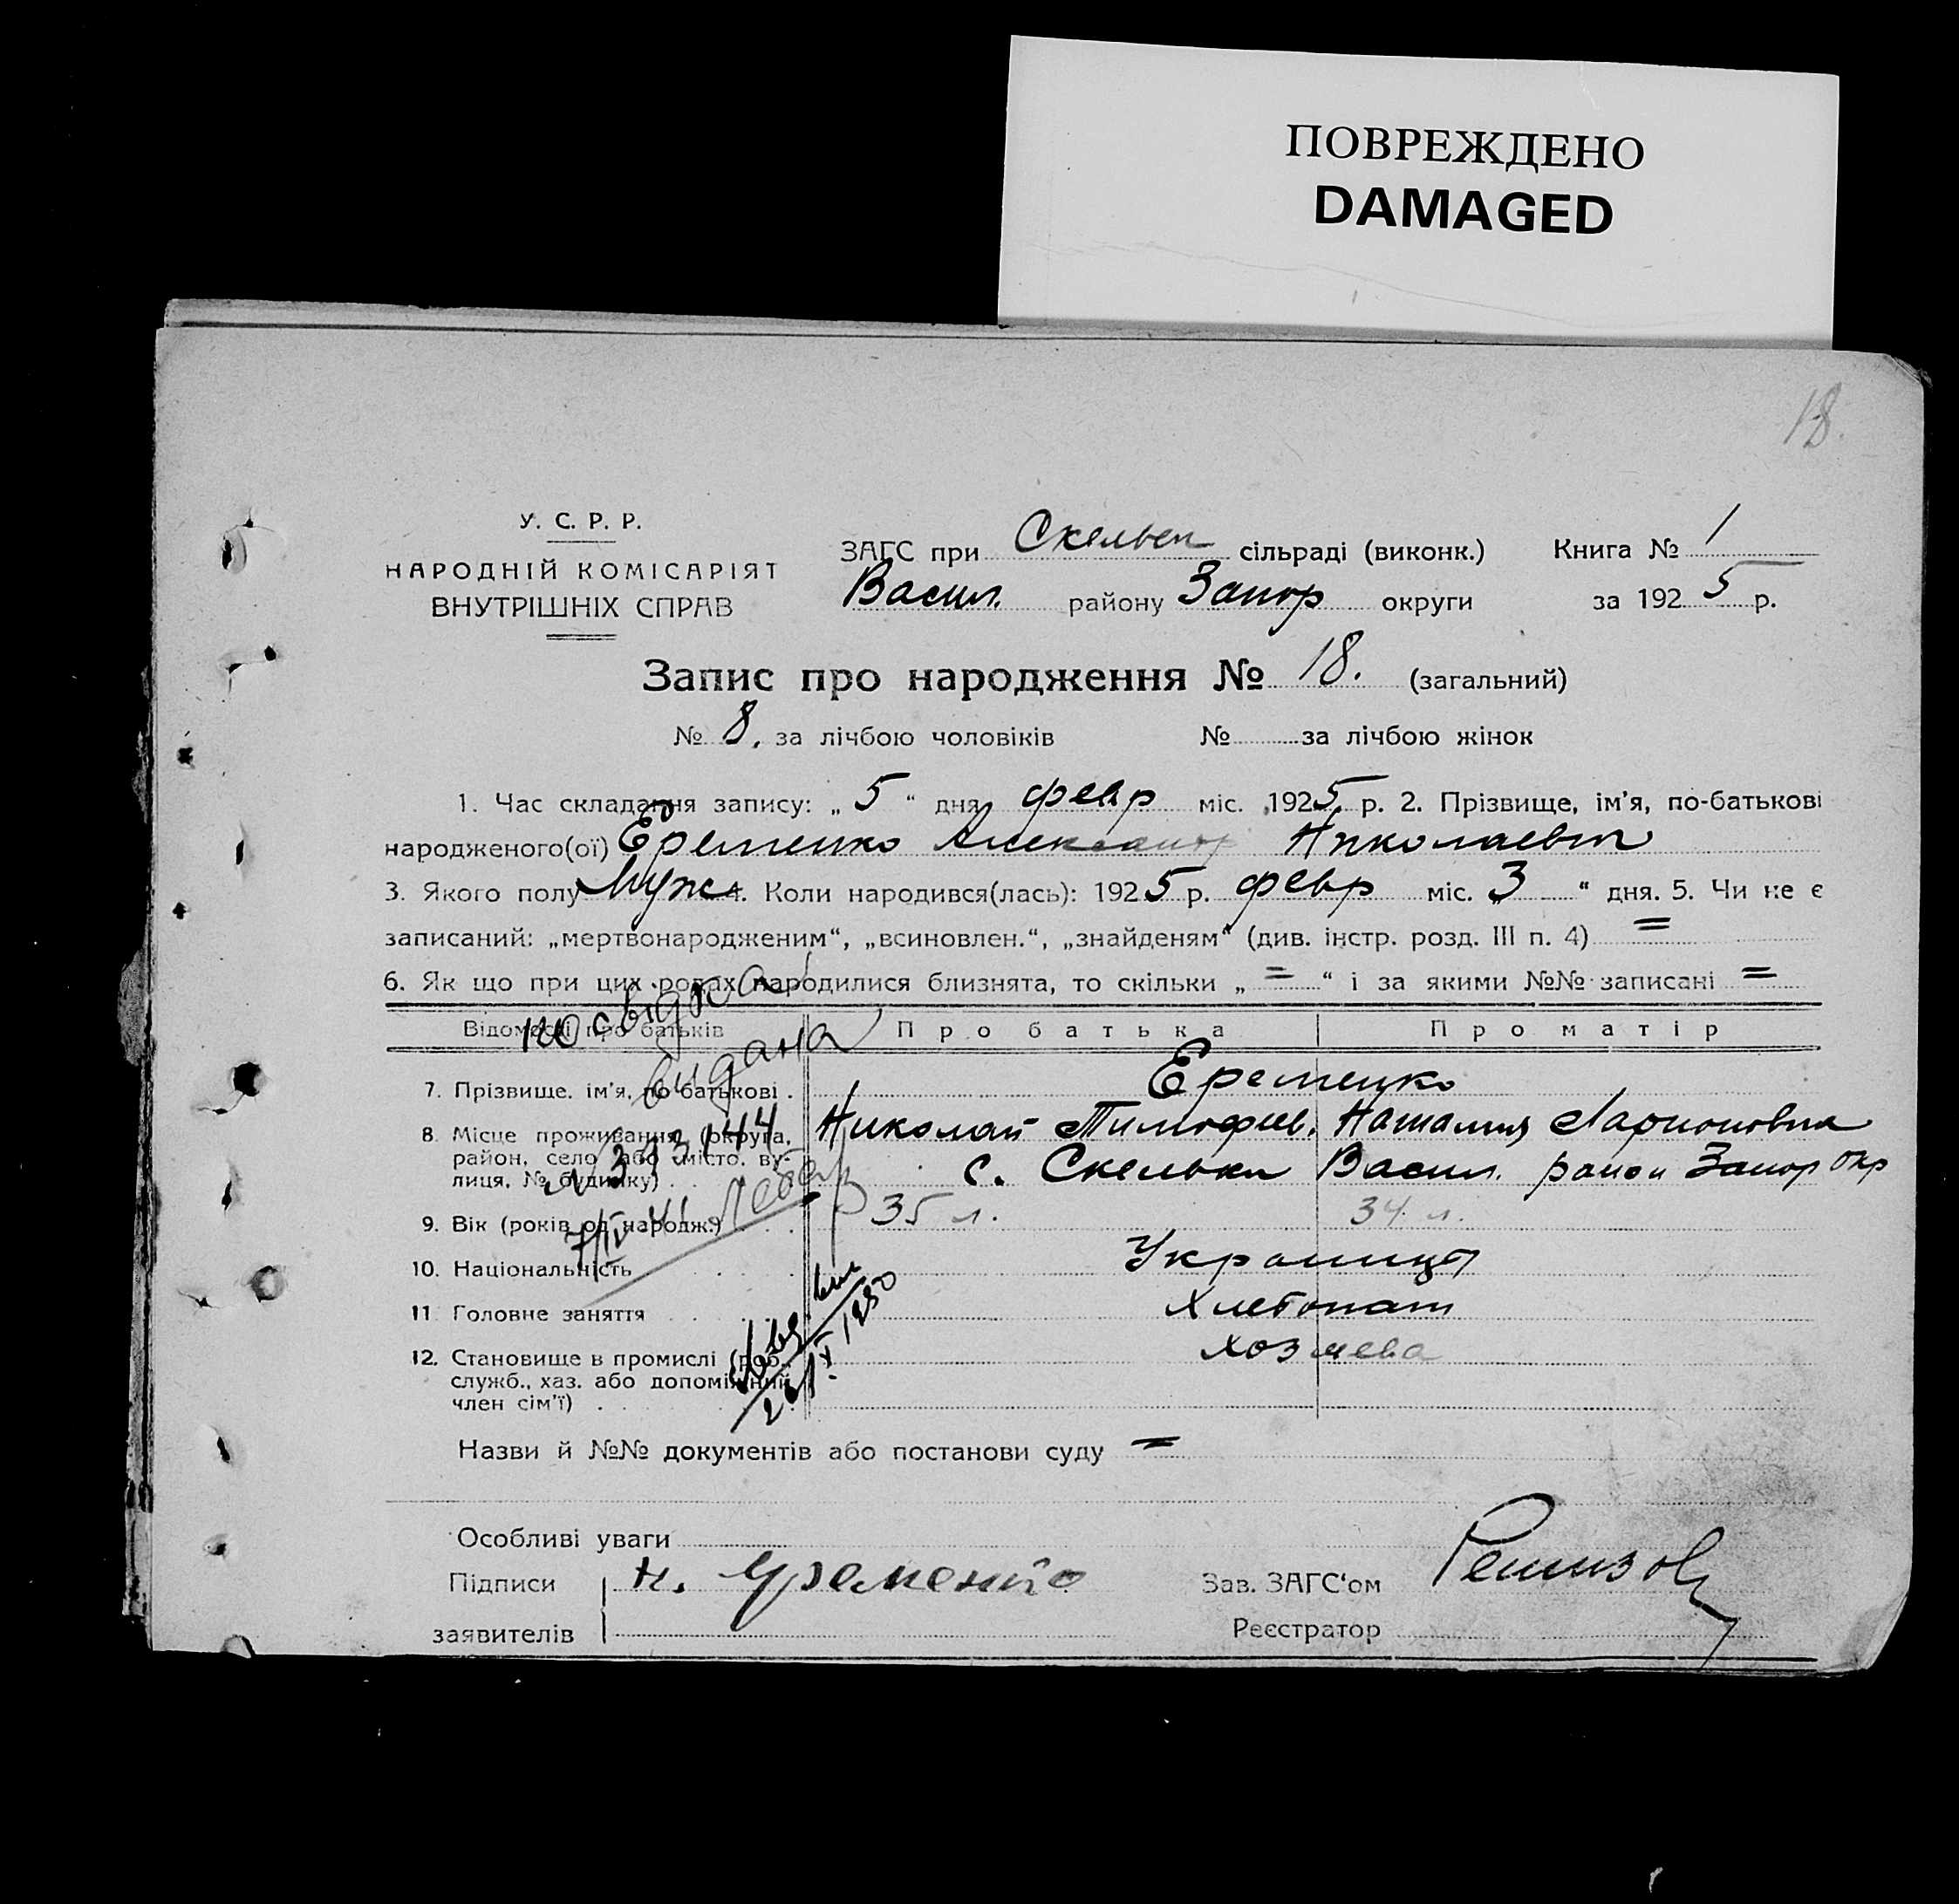 ПОВРЕЖДЕНО
DAMAGED
18.
У. С. Р. Р.
НАРОДНІЙ КОМІСАРІЯТ
ВНУТРІШНІХ СПРАВ
ЗАГС при Скельск сільраді (виконк.) Книга № 1
Васил. району Запор округи за 1925 р.
Запис про народження № 18. (загальний)
№ 8. за лічбою чоловіків № за лічбою жінок
1. Час складання запису: „ 5 “ дня февр міс. 1925 р. 2. Прізвище, ім’я, по-батькові
народженого(ої) Еременко Александр Николаевич
3. Якого полу Муж 4. Коли народився(лась): 1925 р. февр міс. „ 3 “ дня. 5. Чи не є
записаний: „мертвонародженим“, „всиновлен.“, „знайденям“ (див. інстр. розд. III п. 4) =
6. Як що при цих родах народилися близнята, то скільки „ = “ і за якими №№ записані =
Відомості про батьків Про батька Про матір
7. Прізвище, ім’я, по-батькові . Еременко
Николай Тимофеев. Наталия Ларионовна
8. Місце проживання (округа,
район, село або місто, ву-
лиця, № будинку) . . . с. Скельки Васил. район Запор окр
9. Вік (років од народж.) . . 35 л. 34 л.
10. Національність . . . Украинцы
11. Головне заняття . . . . Хлебопаш
12. Становище в промислі (роб.,
служб., хаз. або допоміжний
член сім’ї) . . . . хозяева
посвідка
видана
№ 393144
Назви й №№ документів або постанови суду =
Особливі уваги
Підписи
заявителів
Н. Яременко
Зав. ЗАГС‘ом
Реєстратор